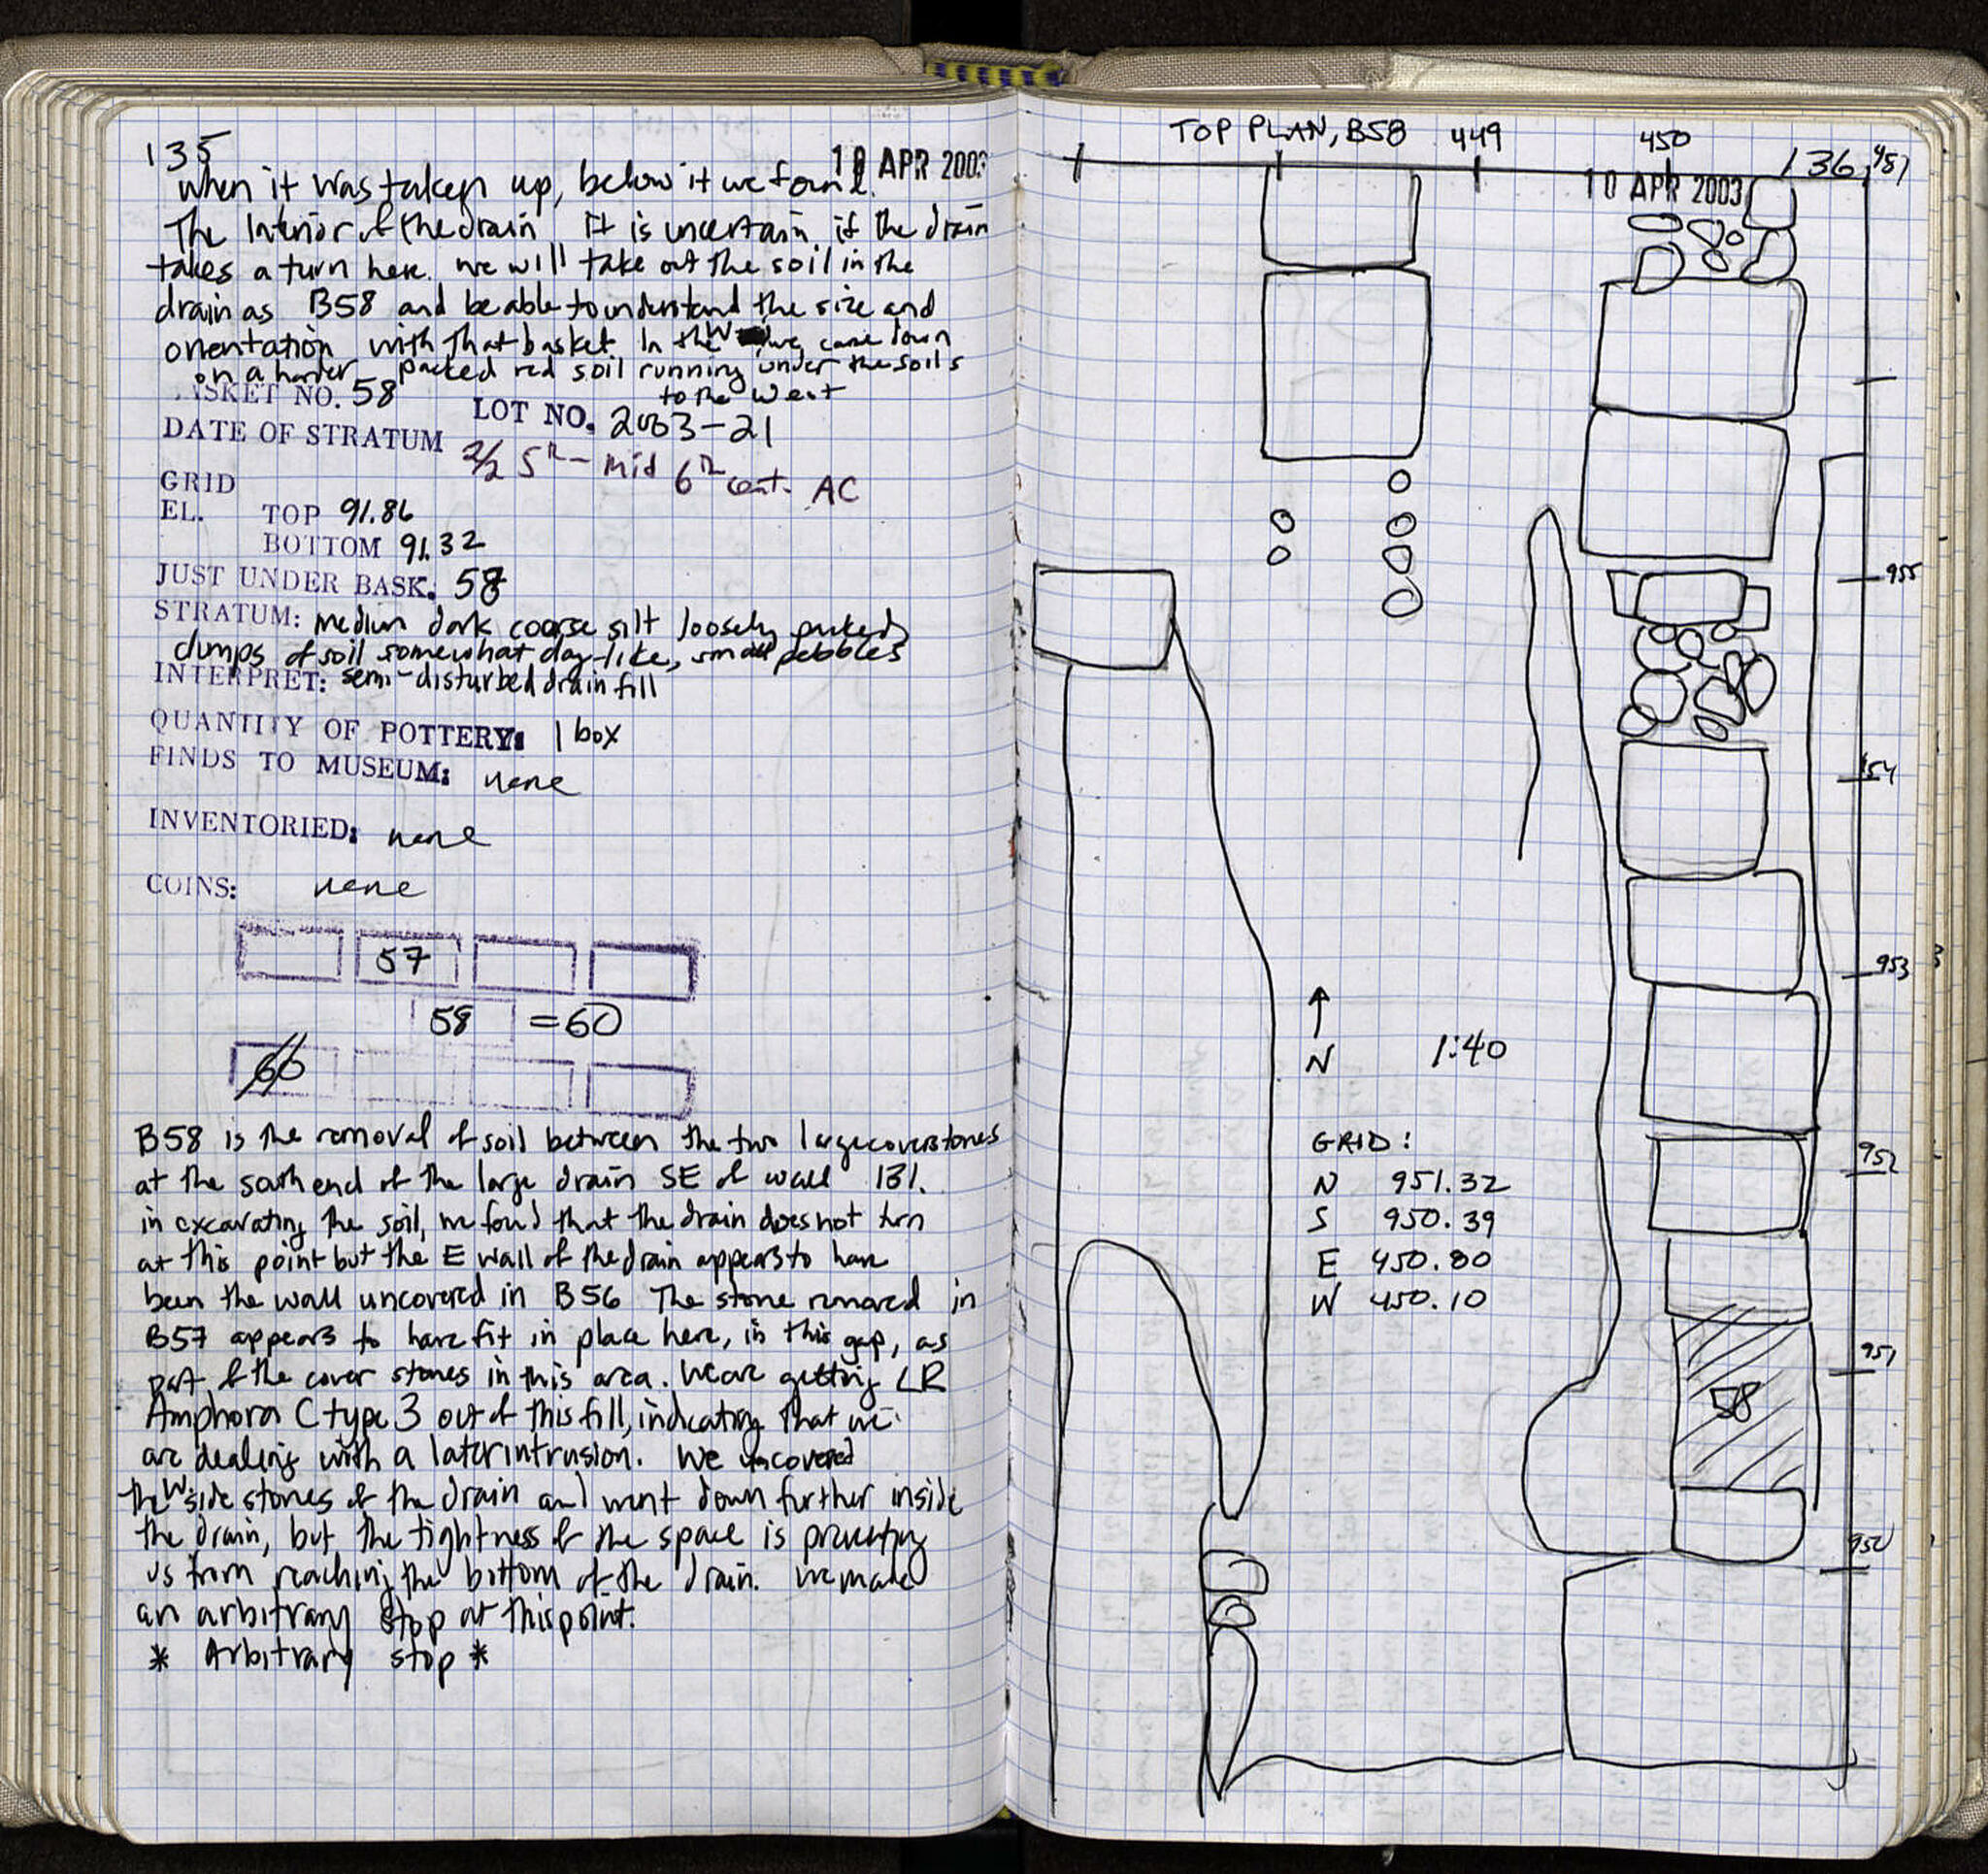 135
10 APR 2003
when it was taken up, below it we found.
The Interior of the drain It is uncertain if the drain
takes a turn here. we will take out the soil in the
drain as B58 and be able to understand the size and
orientation with that basket. In the W we came down
on a harder packed red soil running under the soils
to the West
BASKET NO. 58
LOT NO. 2003-21
DATE OF STRATUM
2/2 5th - mid 6th cent. AC
GRID
EL. TOP 91.86
BOTTOM 91.32
JUST UNDER BASK: 57
STRATUM: medium dark coarse silt loosely packed
dumps of soil somewhat clay-like, small pebbles
INTERPRET: semi-disturbed drain fill
QUANTITY OF POTTERY: 1 box
FINDS TO MUSEUM: none
INVENTORIED: none
COINS: none
57
58 = 60
60
B58 is the removal of soil between the two large coverstones
at the south end of the large drain SE of wall 131.
in excavating the soil, we found that the drain does not turn
at this point but the E wall of the drain appears to have
been the wall uncovered in B56 The stone removed in
B57 appears to have fit in place here, in this gap, as
part of the cover stones in this area. We are getting LR
Amphora C type 3 out of this fill, indicating that we
are dealing with a later intrusion. We uncovered
the W side stones of the drain and went down further inside
the drain, but the tightness of the space is preventing
us from reaching the bottom of the drain. We made
an arbitrary stop at this point.
* Arbitrary stop *
TOP PLAN, B58 449 450 451
136
10 APR 2003
955
954
953
↑
N 1:40
GRID:
N 951.32
S 950.39
E 450.80
W 450.10
952
951
58
950